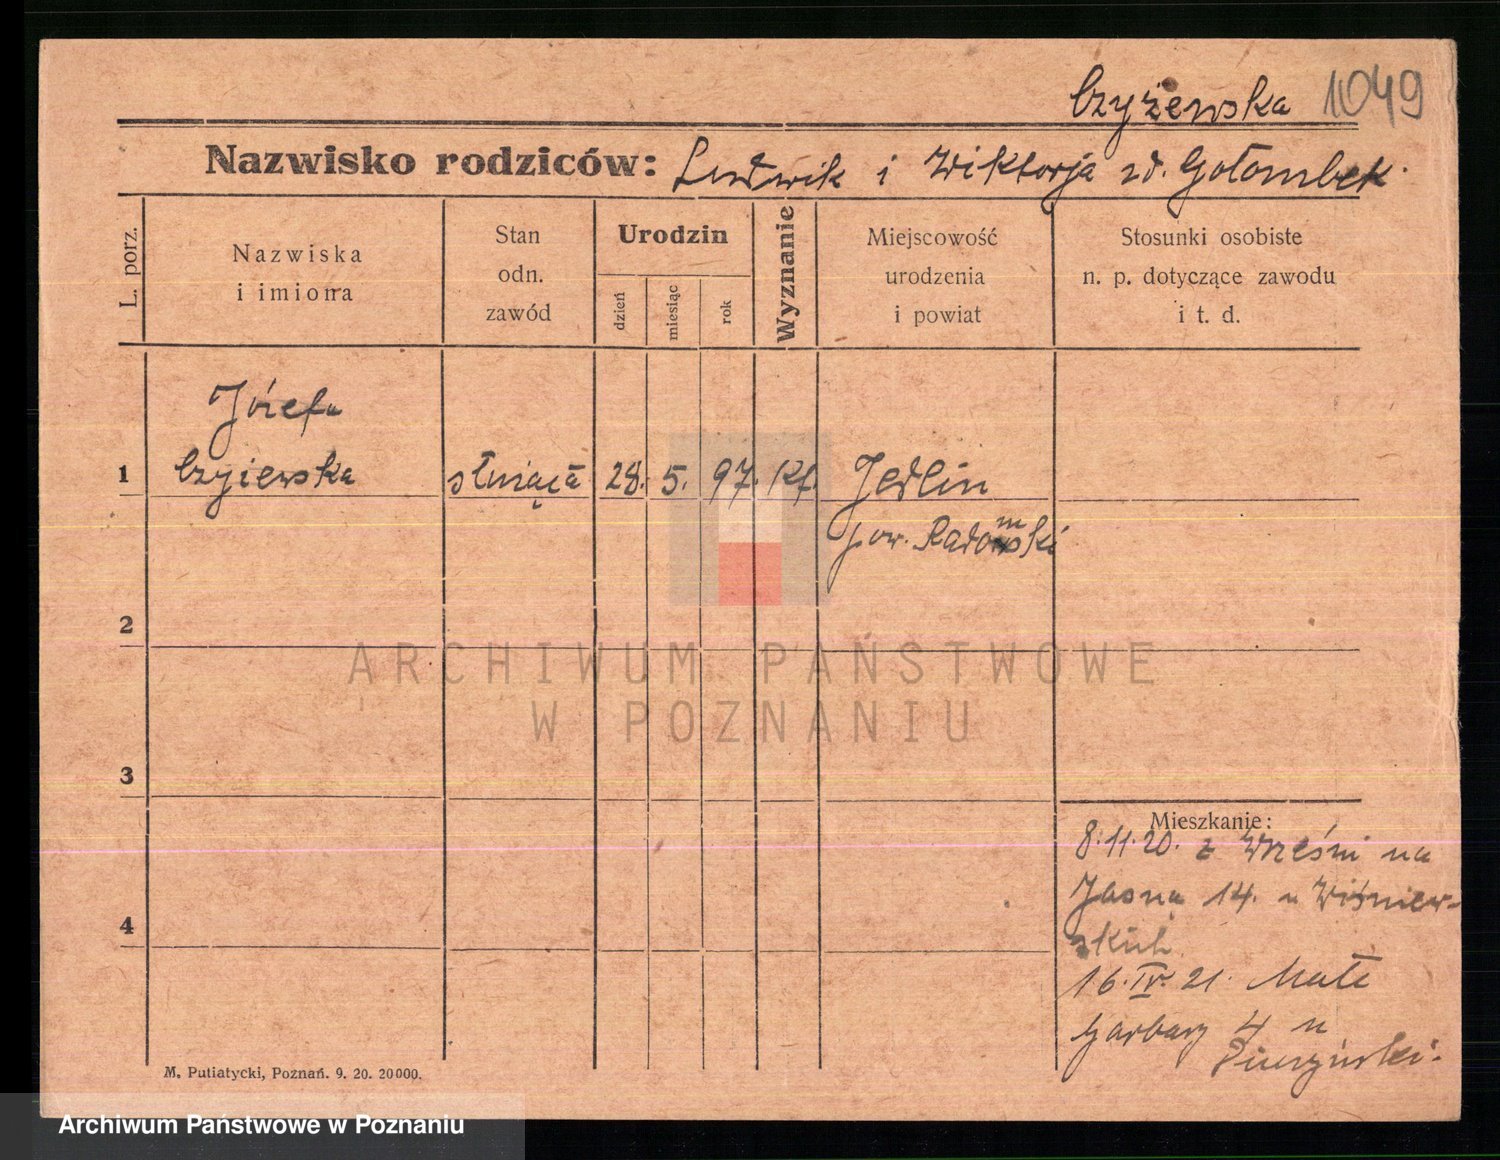 Czyżewska 1049
Nazwisko rodziców: Ludwik i Wiktorja zd. Gołombek.
L. porz.
Nazwiska
i imiona
Stan
odn.
zawód
Urodzin
dzień
miesiąc
rok
Wyznanie
Miejscowość
urodzenia
i powiat
Stosunki osobiste
n. p. dotyczące zawodu
i t. d.
Józefa
1 Czyżewska służąca 28. 5. 97. Kf. Jedlin
pow. Radomski
2
3
4
Mieszkanie:
8.11.20. z Wrześni na
Jasną 14. u Wiśniew-
skich
16.IV.21. Małe
Garbary 4 u
M. Putiatycki, Poznań. 9. 20. 20000.
ARCHIWUM PAŃSTWOWE
W POZNANIU
Archiwum Państwowe w Poznaniu